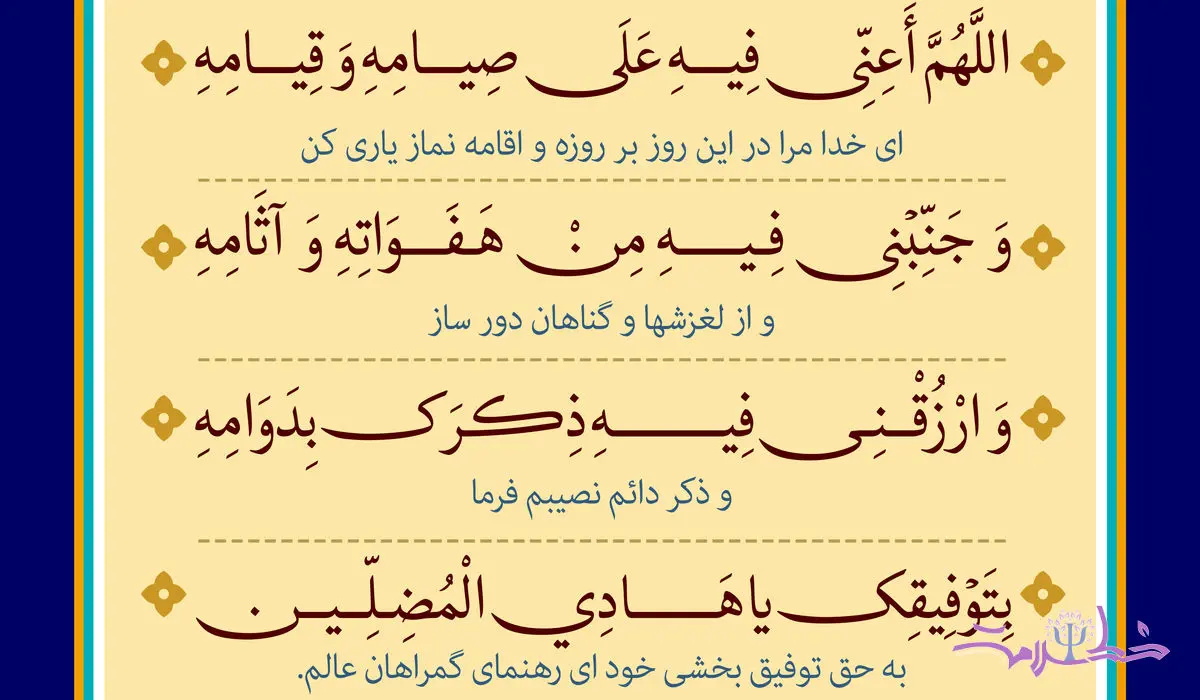 اللَّهُمَّ أَعِنِّی فِیهِ عَلَی صِیامِهِ وَ قِیامِهِ
ای خدا مرا در این روز بر روزه و اقامه نماز یاری کن
وَ جَنِّبْنِی فِیهِ مِنْ هَفَوَاتِهِ وَ آثَامِهِ
و از لغزشها و گناهان دور ساز
وَ ارْزُقْنِی فِیهِ ذِکرَک بِدَوَامِهِ
و ذکر دائم نصیبم فرما
بِتَوْفِیقِک یا هَادِي الْمُضِلِّین.
به حق توفیق بخشی خود ای رهنمای گمراهان عالم.
خط سلامت